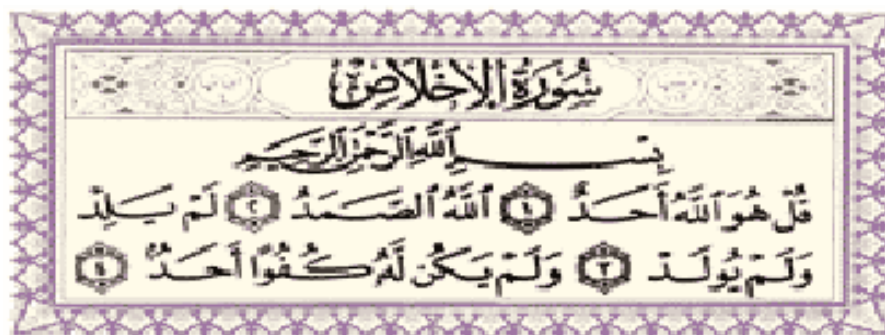 سُورَةُ الْإِخْلَاصِ
بِسْمِ ٱللَّهِ ٱلرَّحْمَٰنِ ٱلرَّحِيمِ
قُلْ هُوَ ٱللَّهُ أَحَدٌ ١ ٱللَّهُ ٱلصَّمَدُ ٢ لَمْ يَلِدْ
وَلَمْ يُولَدْ ٣ وَلَمْ يَكُن لَّهُۥ كُفُوًا أَحَدٌۢ ٤